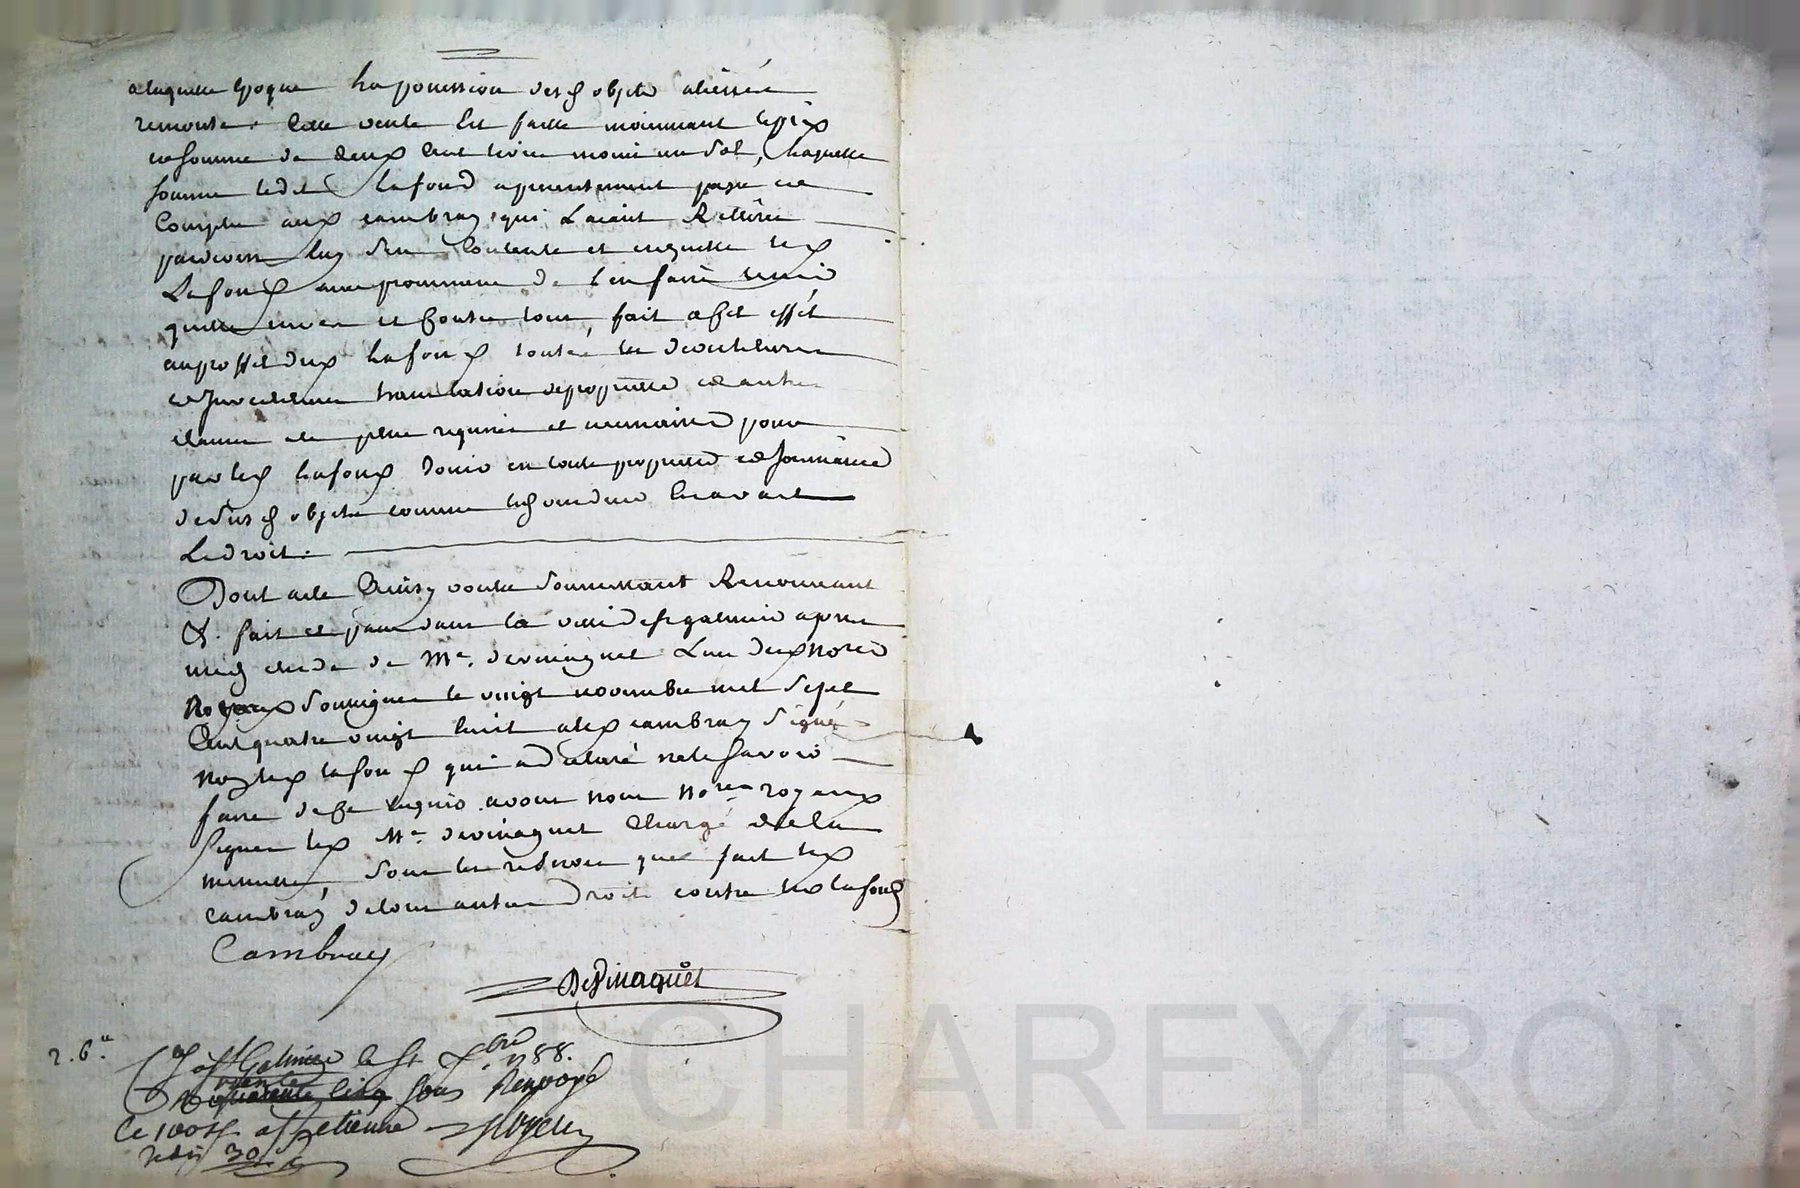 a laquelle Epoque La possession desd objets alliénés
remonte. Cette vente Est faitte moiennant le prix
et somme de deux Cent livre moins un sol, Laquelle
somme led Lafond a presentement payé et
Compté aux cambray qui L'aiant Retirée
pardevers luy s'en Contente et en quitte led
Lafond avec promesse de l'en faire tenir
quitte envers et Contre tous, fait a cet effet
au proffit dud Lafond toutes les
translation de propriété et autres
clauses de plus requises et necessaires pour
par led Lafond Jouir en toute propriété et Jouissance
de susd objets comme led vendeur En avait
Le droit.
Dont acte Ainsy voulu soumettant Renonceant
&. fait et passé dans la ville de st galmier apres
midy etude de Me. devinaguet L'un des Nores
Royaux soussignes le vingt novembre mil sept
Cent quatre vingt huit a led cambray signé
non led lafond qui a déclaré ne le savoir
faire de ce requis avons nous Nores royaux
signé led Me devinaguet Chargé de la
minutte, sous les reserves que fait led
cambray de tous autres Droits contre led lafond
Cambray
Devinaguet
2. 6.
a st Galmier le bre 1788.
trente
quarante cinq sous Renvoyé
le 100e a st etienne
30s
CHAREYRON